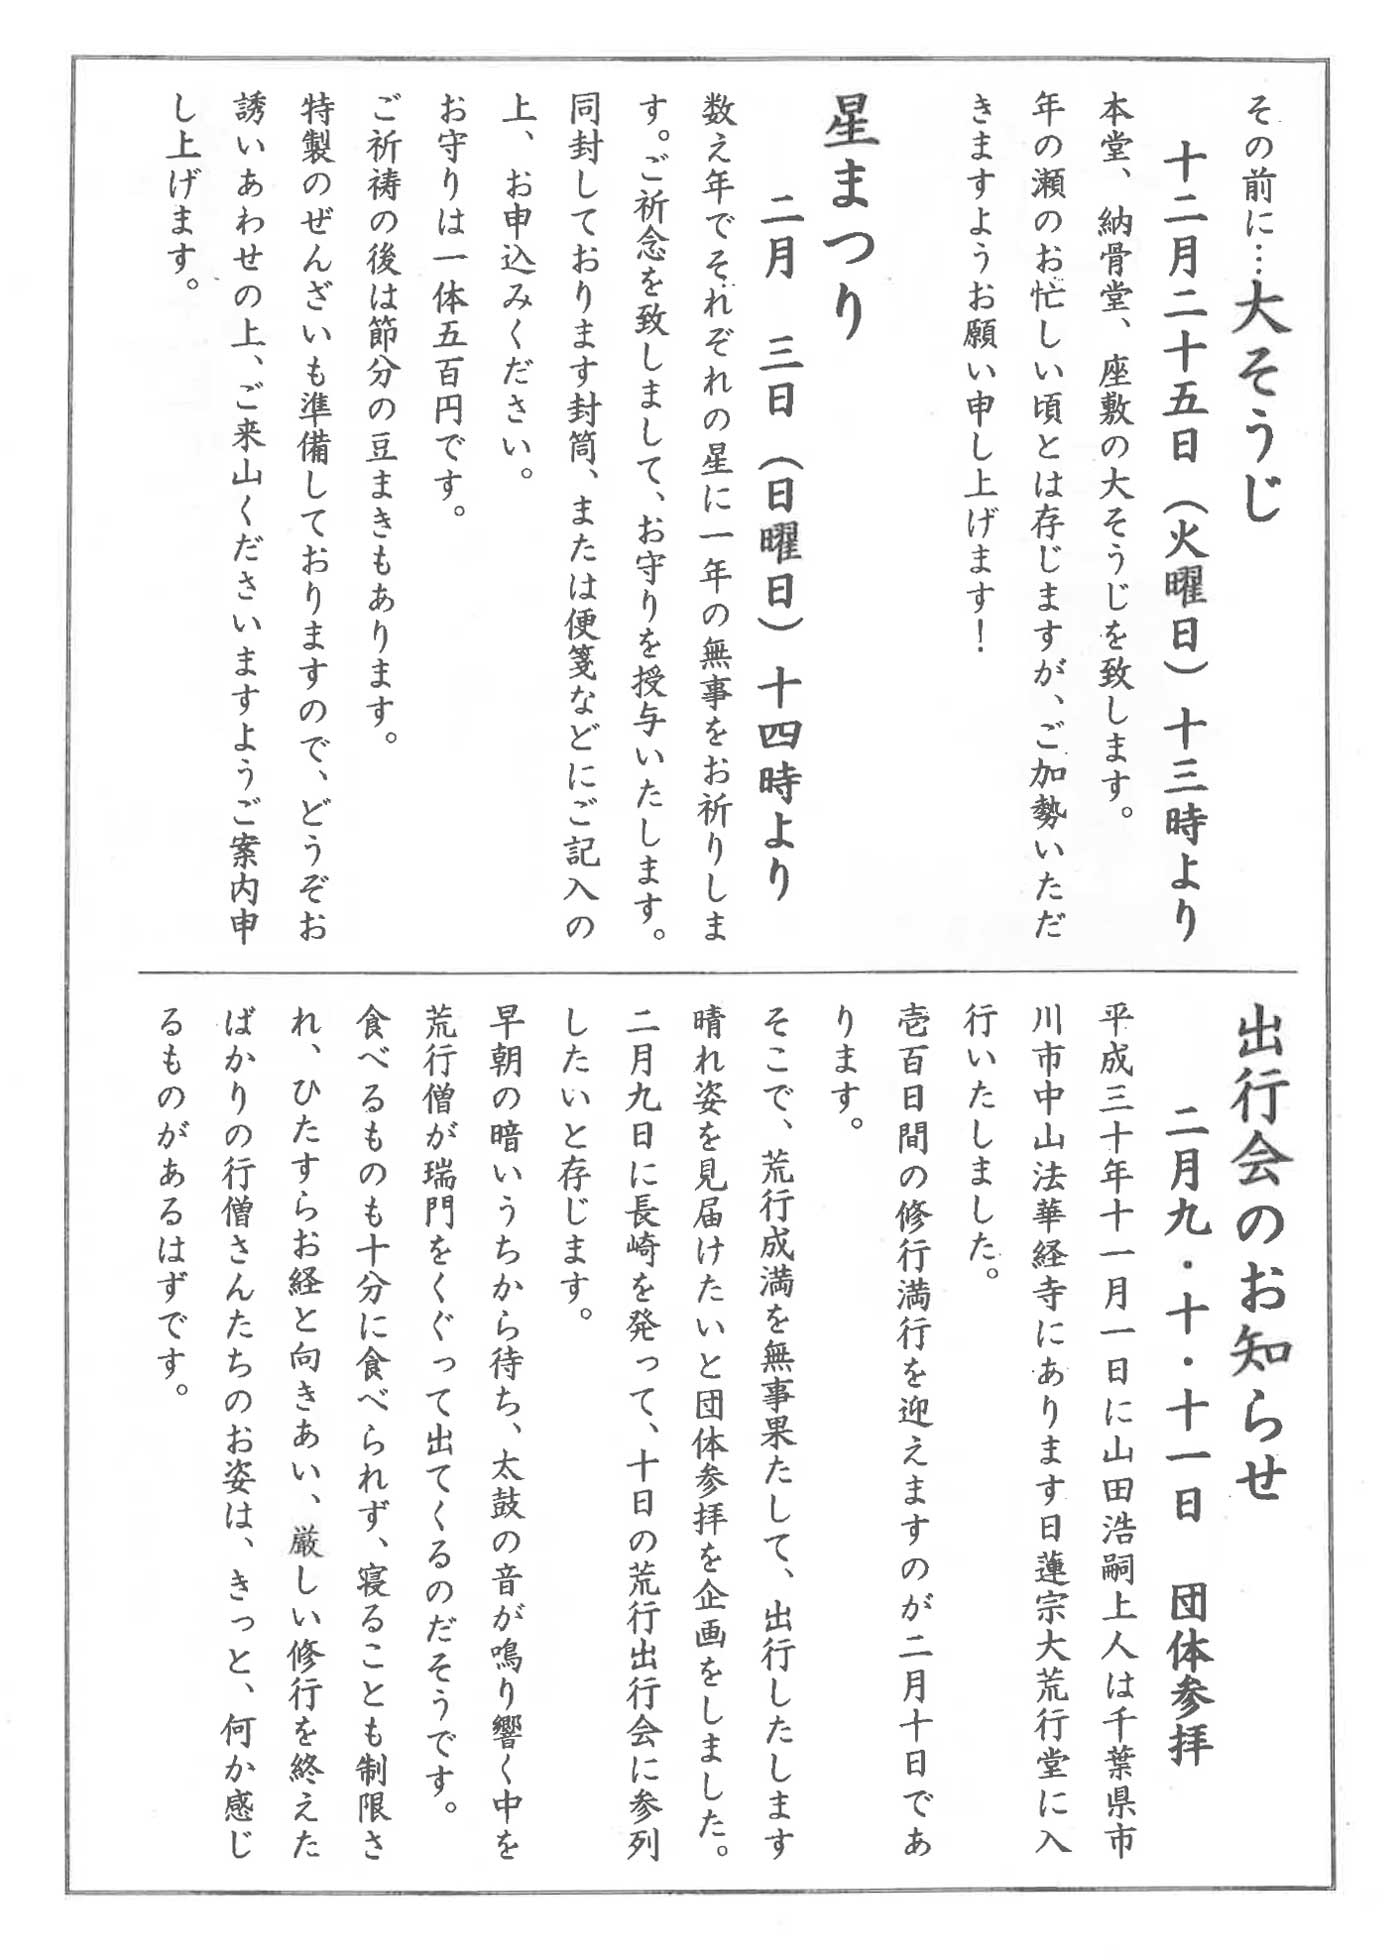 その前に…大そうじ
十二月二十五日（火曜日）十三時より
本堂、納骨堂、座敷の大そうじを致します。
年の瀬のお忙しい頃とは存じますが、ご加勢いただ
きますようお願い申し上げます！
星まつり
二月　三日（日曜日）十四時より
数え年でそれぞれの星に一年の無事をお祈りしま
す。ご祈念を致しまして、お守りを授与いたします。
同封しております封筒、または便箋などにご記入の
上、お申込みください。
お守りは一体五百円です。
ご祈祷の後は節分の豆まきもあります。
特製のぜんざいも準備しておりますので、どうぞお
誘いあわせの上、ご来山くださいますようご案内申
し上げます。
出行会のお知らせ
二月九・十・十一日　団体参拝
平成三十年十一月一日に山田浩嗣上人は千葉県市
川市中山法華経寺にあります日蓮宗大荒行堂に入
行いたしました。
壱百日間の修行満行を迎えますのが二月十日であ
ります。
そこで、荒行成満を無事果たして、出行したします
晴れ姿を見届けたいと団体参拝を企画をしました。
二月九日に長崎を発って、十日の荒行出行会に参列
したいと存じます。
早朝の暗いうちから待ち、太鼓の音が鳴り響く中を
荒行僧が瑞門をくぐって出てくるのだそうです。
食べるものも十分に食べられず、寝ることも制限さ
れ、ひたすらお経と向きあい、厳しい修行を終えた
ばかりの行僧さんたちのお姿は、きっと、何か感じ
るものがあるはずです。